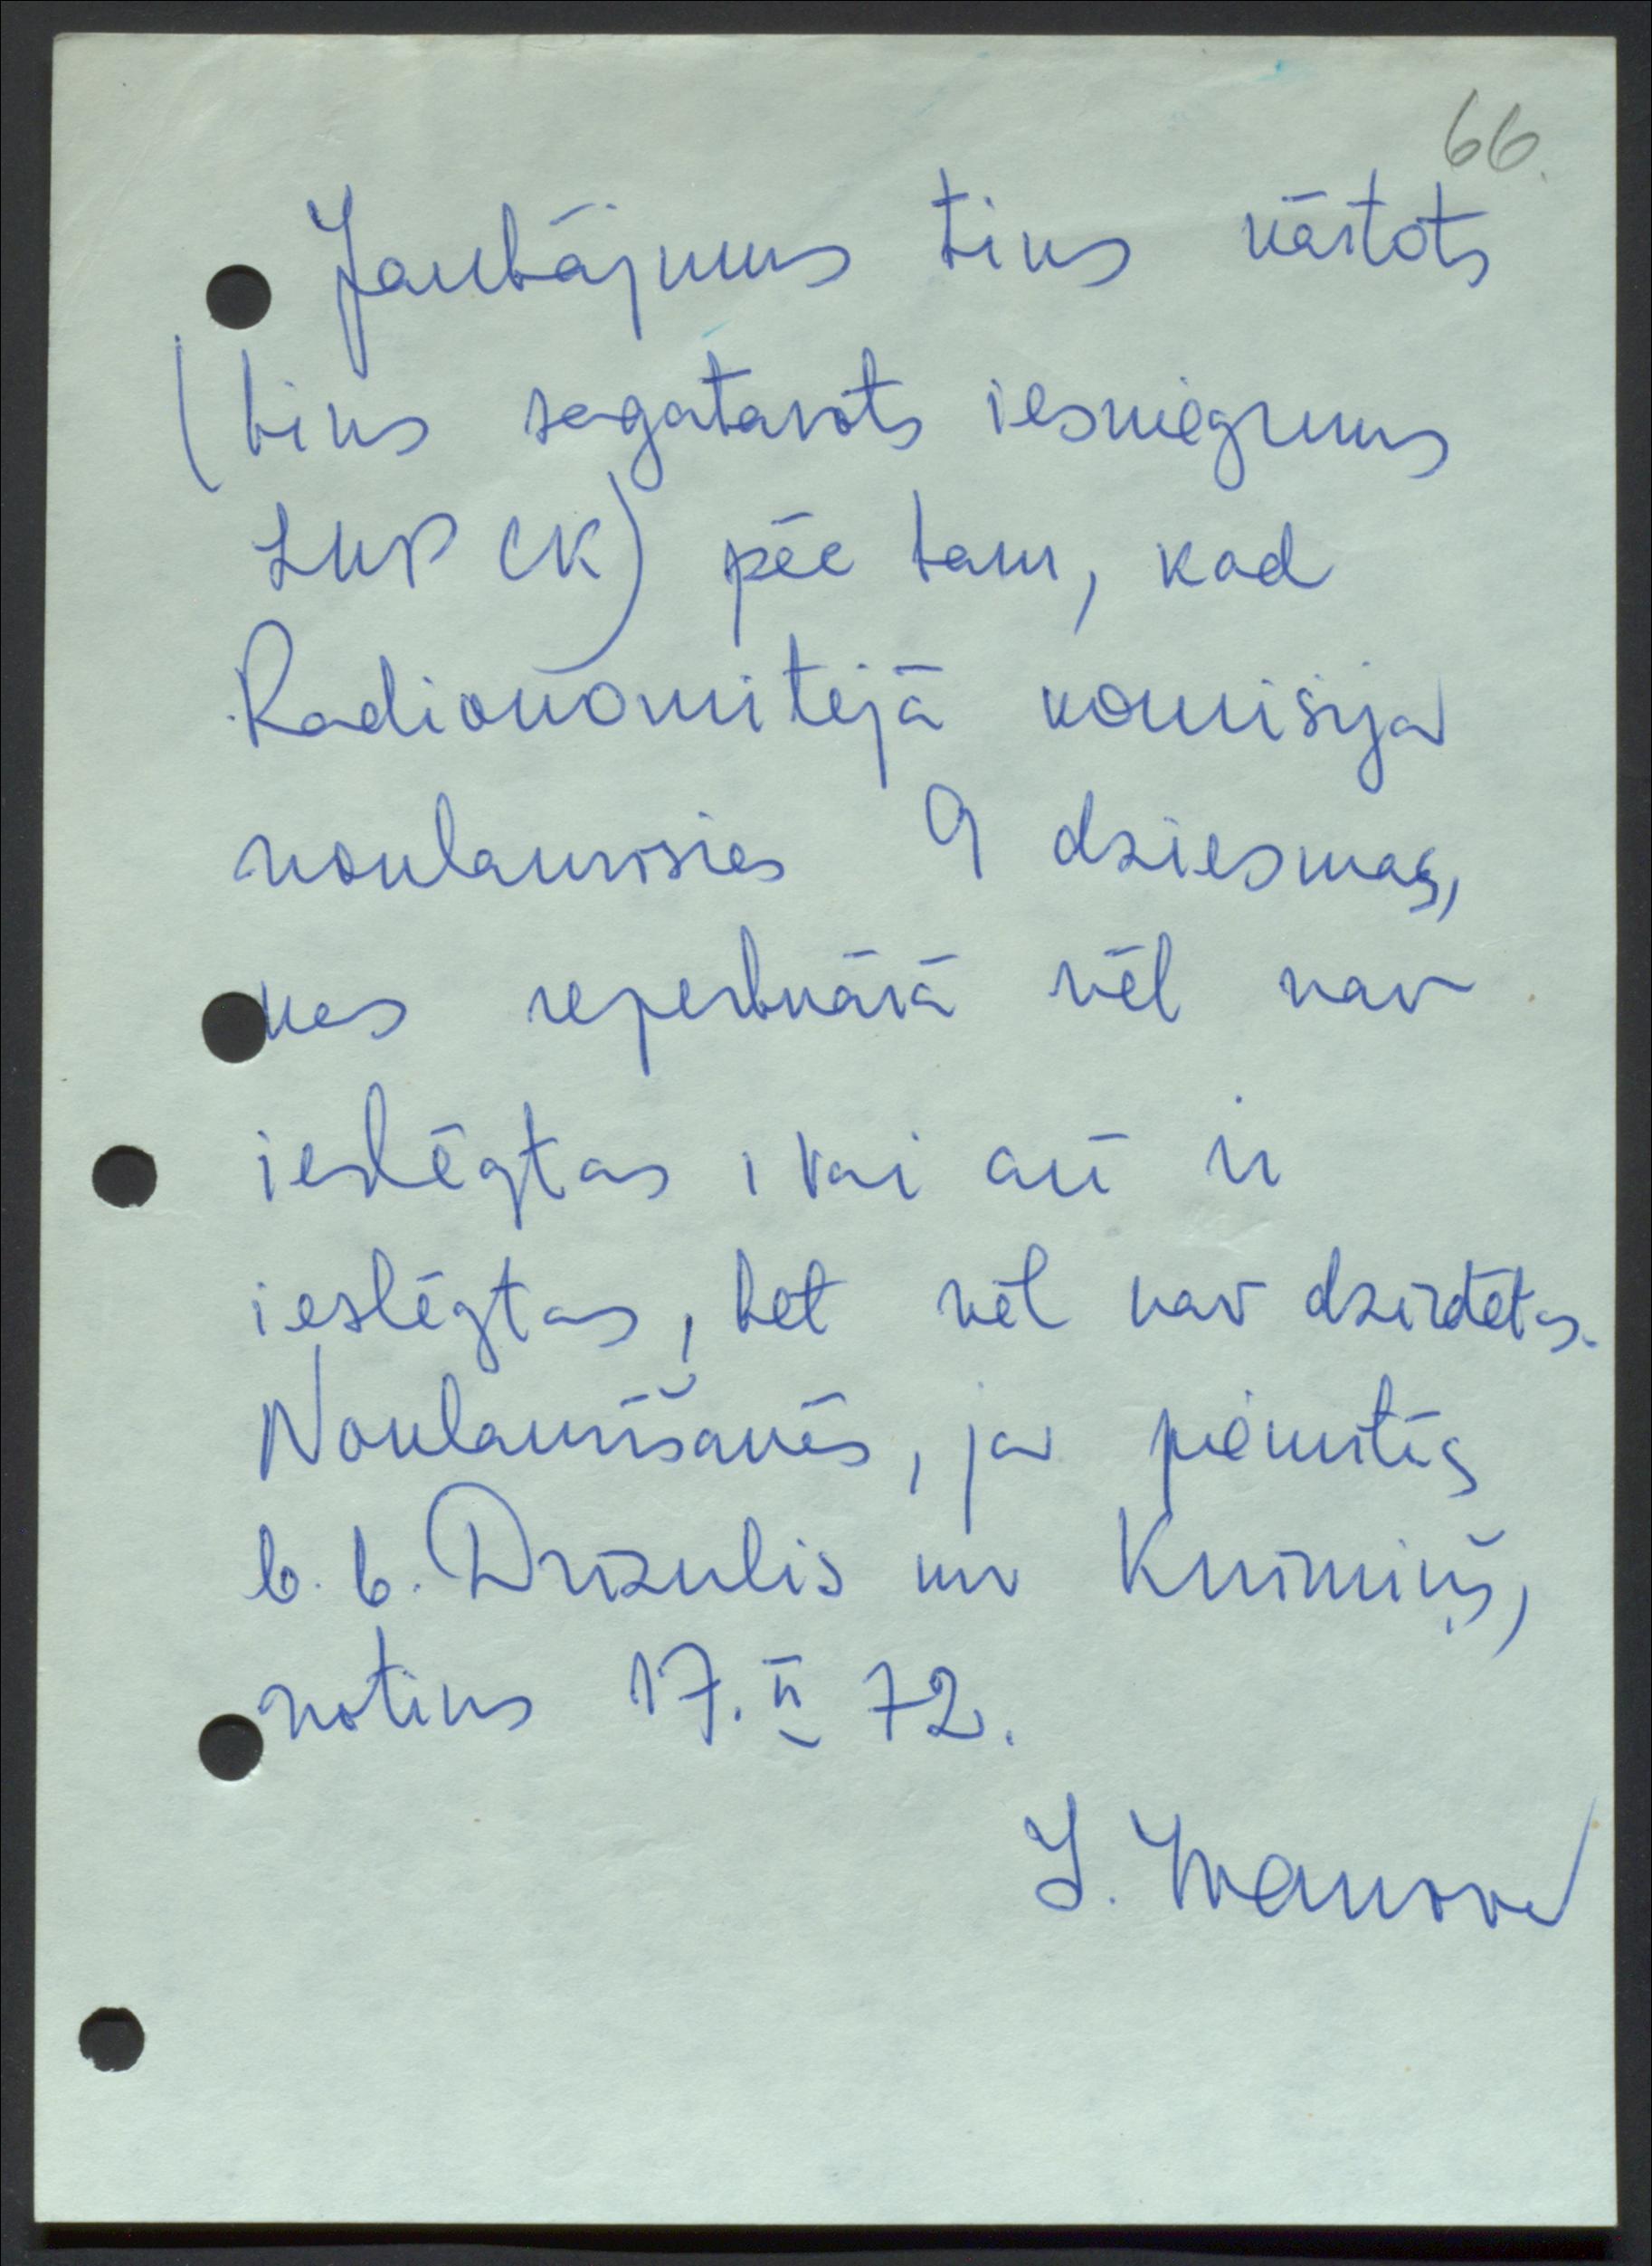 66.
Jautājums tiks kārtots
(tiks sagatavots iesniegums
LKP CK) pēc tam, kad
Radiokomitejā komisija
noklausīsies 9 dziesmas,
kas repertuārā vēl nav
ieslēgtas, vai arī ir
ieslēgtas, bet vēl nav dzirdētas.
Noklausīšanās, ja piekritīs
b. b. Drīzulis un Krūmiņš,
notiks 17. II 72.
I. Ivanova